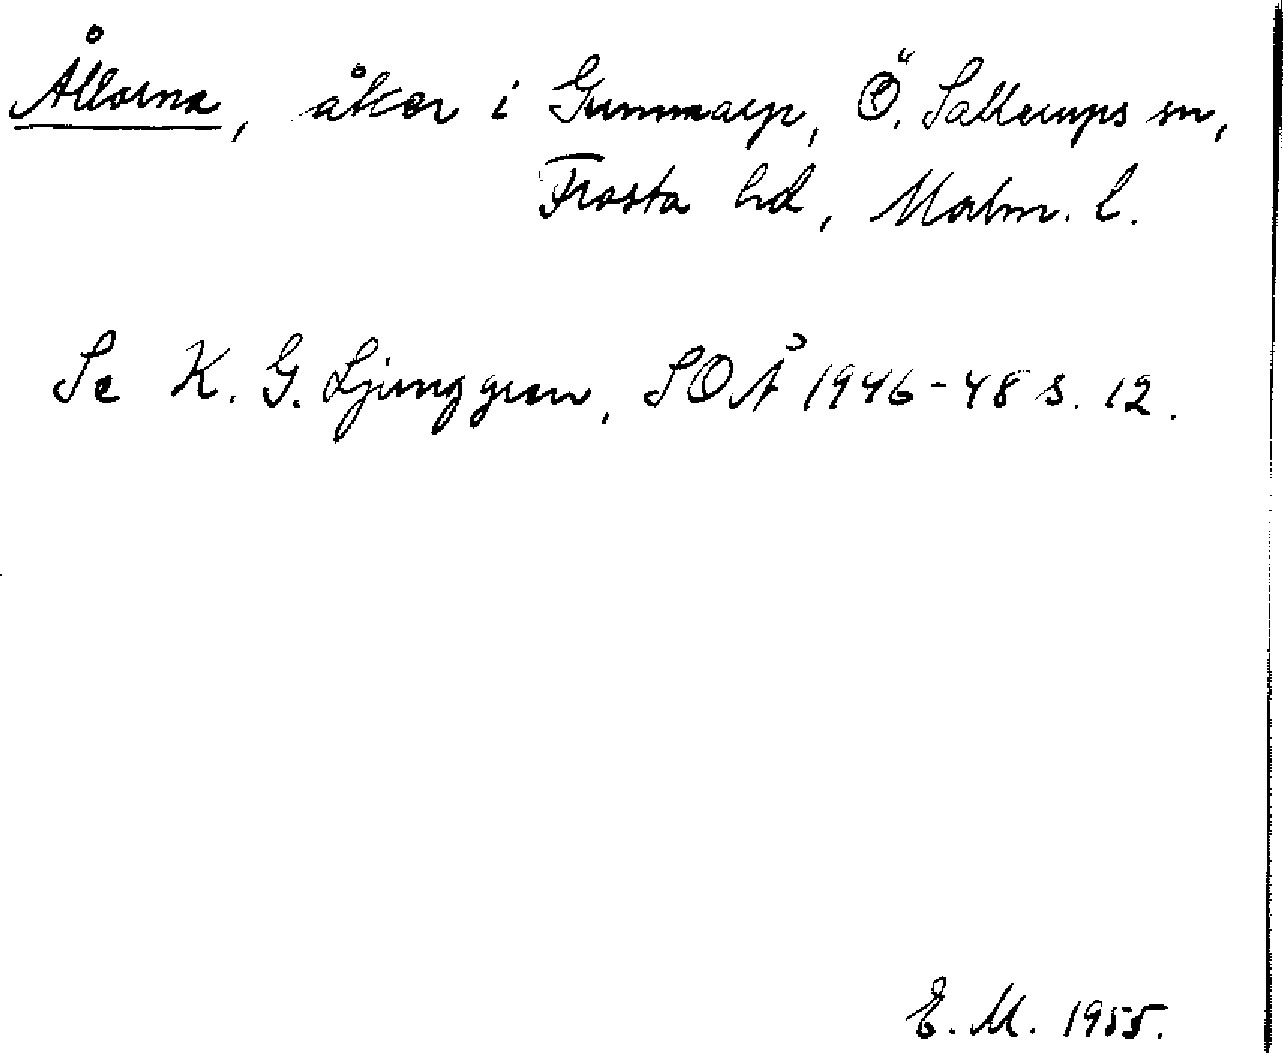 Ållorna, åker i Gummarp, Ö. Sallerups sn,
Frosta hd, Malm. l.
Se K. G. Ljunggren, SOÅ 1946-48 s. 12.
E. M. 1955.